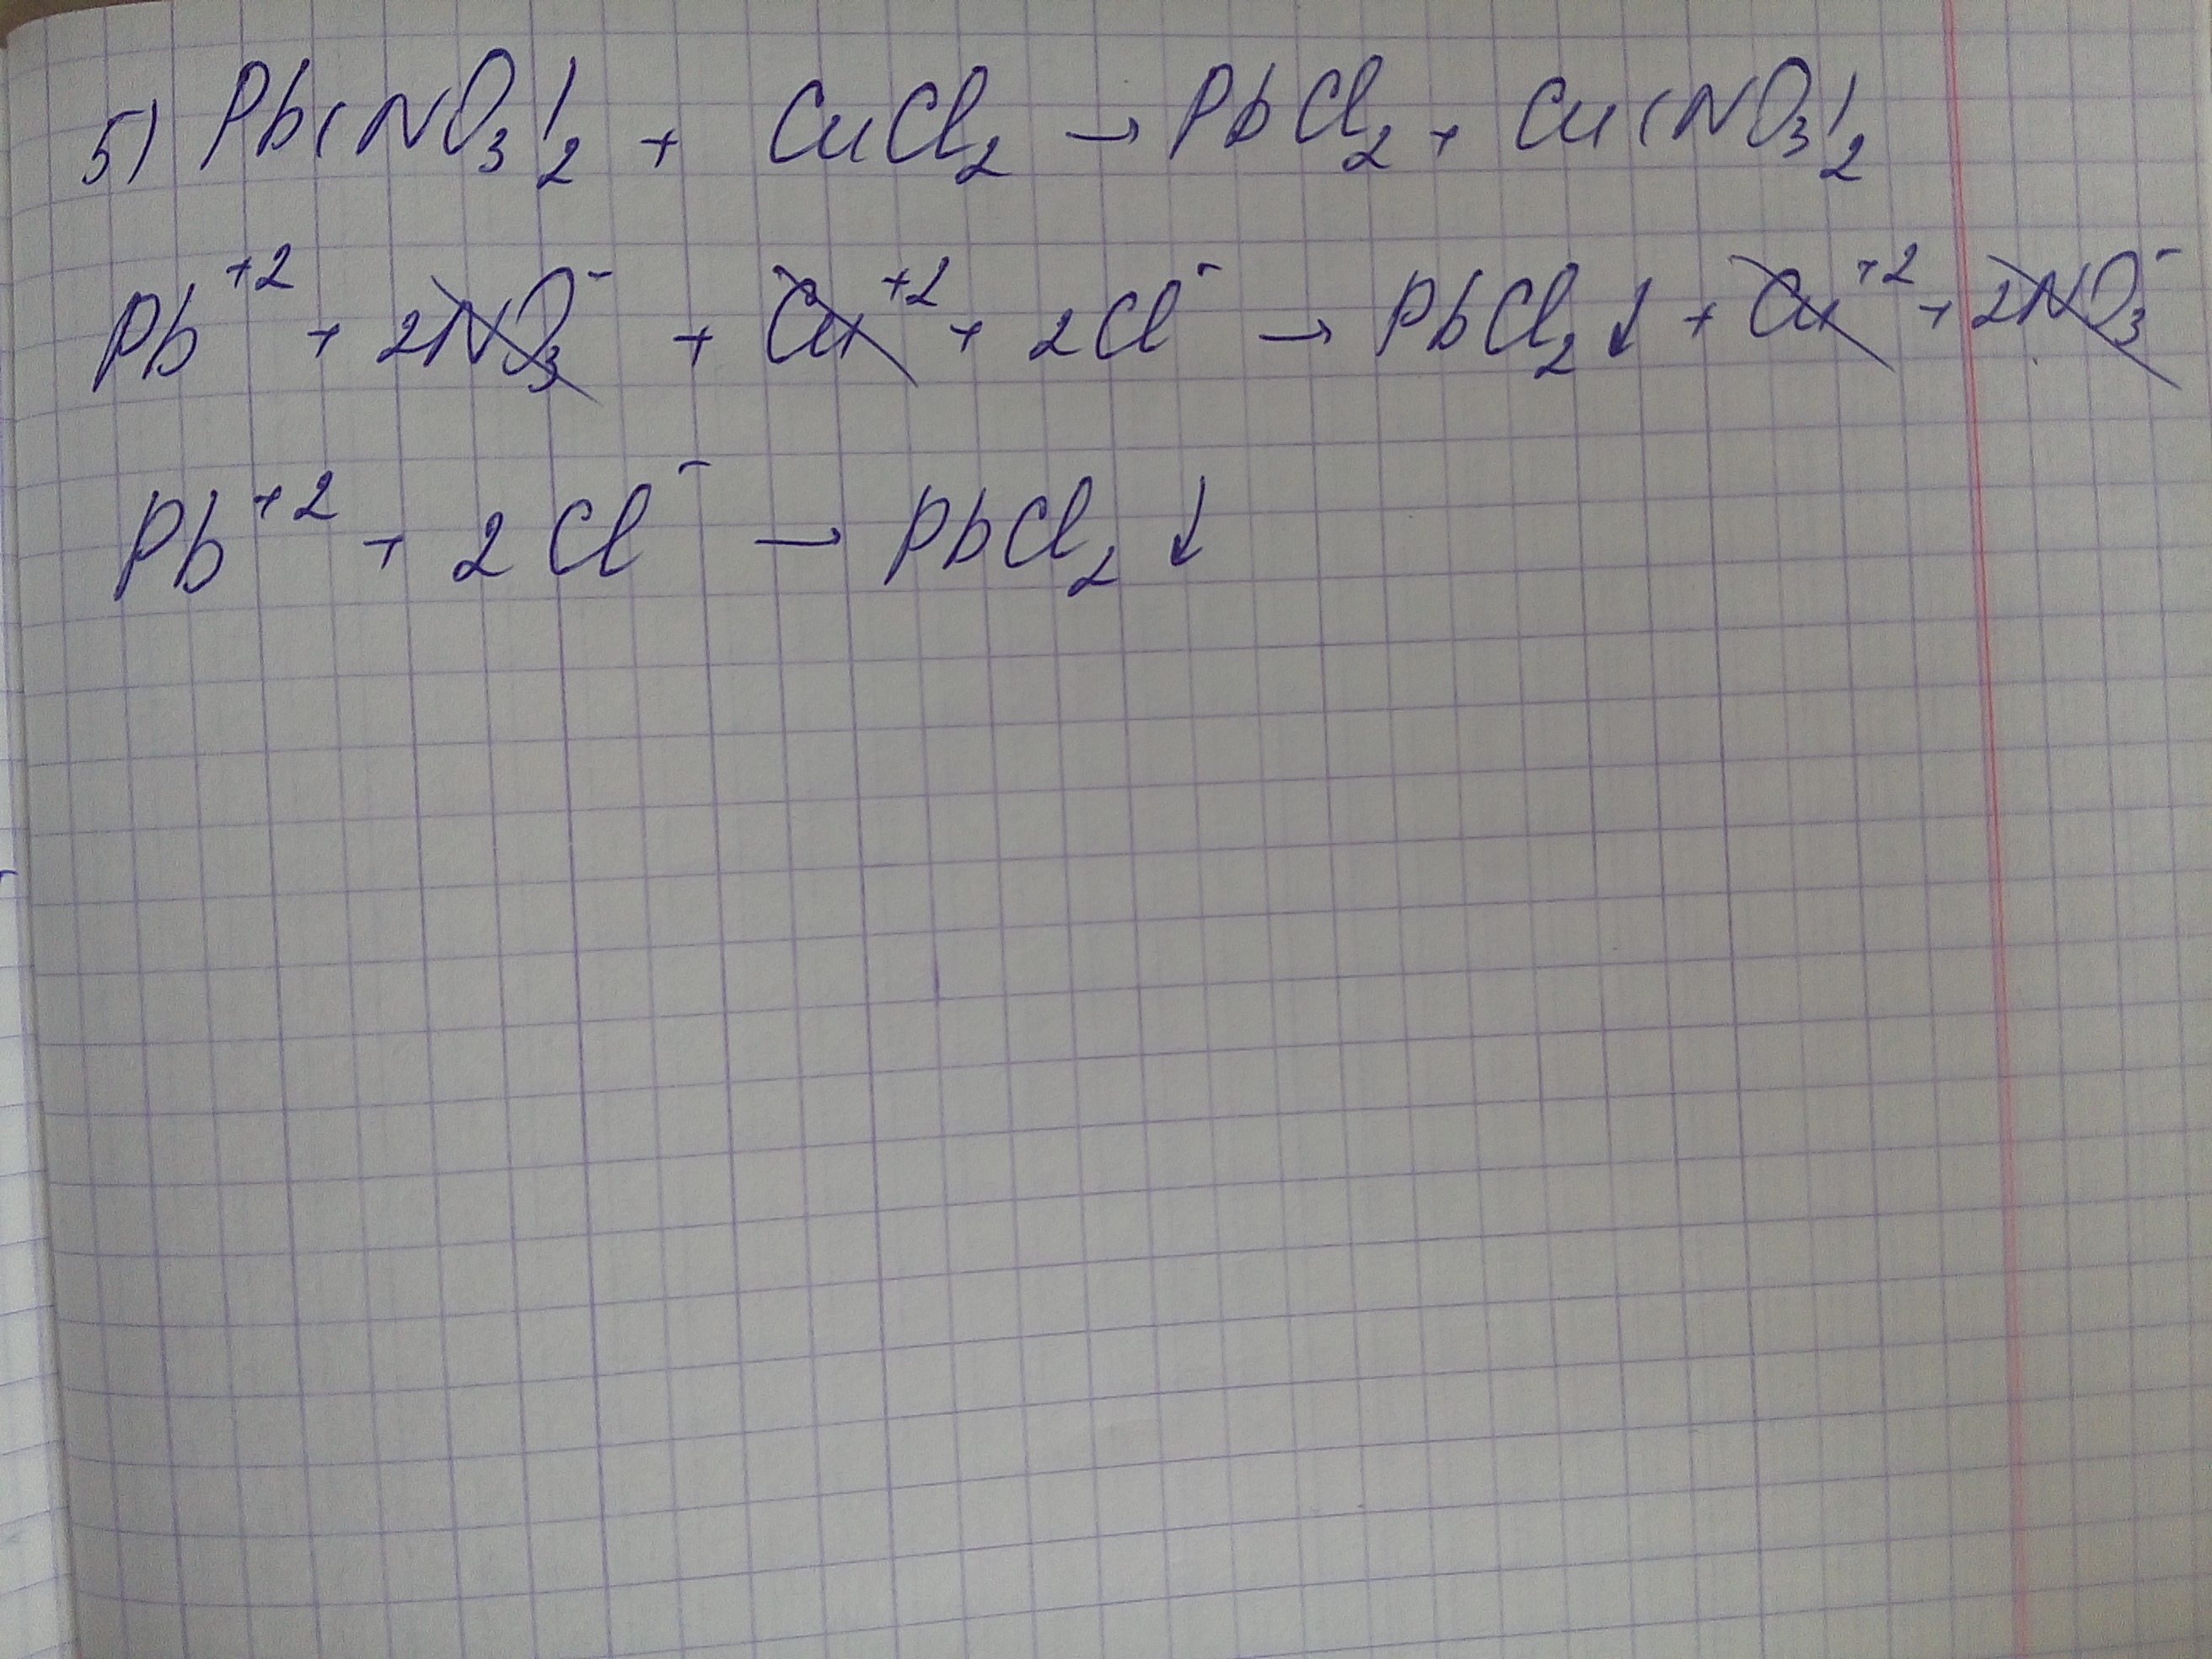 5) Pb(NO₃)₂ + CuCl₂ → PbCl₂ + Cu(NO₃)₂
Pb⁺² + 2NO₃⁻ + Cu⁺² + 2Cl⁻ → PbCl₂↓ + Cu⁺² + 2NO₃⁻
Pb⁺² + 2Cl⁻ → PbCl₂↓